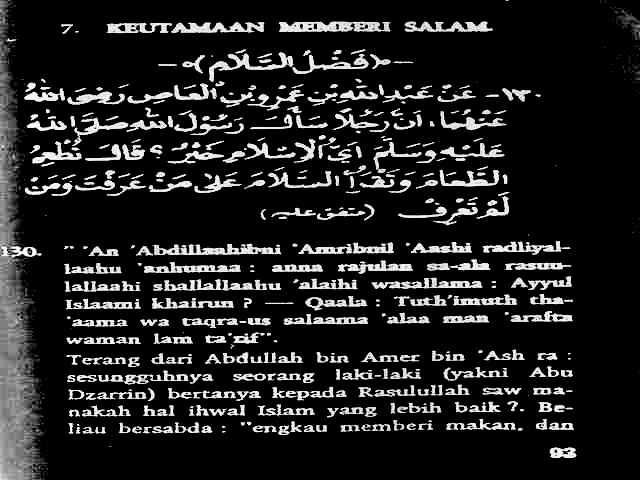 7. KEUTAMAAN MEMBERI SALAM.
—o(فَضْلُ السَّلَامِ)o—
١٣٠- عَنْ عَبْدِ اللهِ بْنِ عَمْرِو بْنِ الْعَاصِ رَضِيَ اللهُ
عَنْهُمَا، اَنَّ رَجُلًا سَأَلَ رَسُوْلَ اللهِ صَلَّى اللهُ
عَلَيْهِ وَسَلَّمَ اَيُّ الْاِسْلَامِ خَيْرٌ؟ قَالَ تُطْعِمُ
الطَّعَامَ وَتَقْرَأُ السَّلَامَ عَلَى مَنْ عَرَفْتَ وَمَنْ
لَمْ تَعْرِفْ (متفق عليه)
130. " 'An 'Abdillaahibni 'Amribnil 'Aashi radliyal-
laahu 'anhumaa : anna rajulan sa-ala rasuu-
lallaahi shallallaahu 'alaihi wasallama : Ayyul
Islaami khairun ? — Qaala : Tuth'imuth tha-
'aama wa taqra-us salaama 'alaa man 'arafta
waman lam ta'rif".
Terang dari Abdullah bin Amer bin 'Ash ra :
sesungguhnya seorang laki-laki (yakni Abu
Dzarrin) bertanya kepada Rasulullah saw ma-
nakah hal ihwal Islam yang lebih baik ?. Be-
liau bersabda : "engkau memberi makan, dan
93